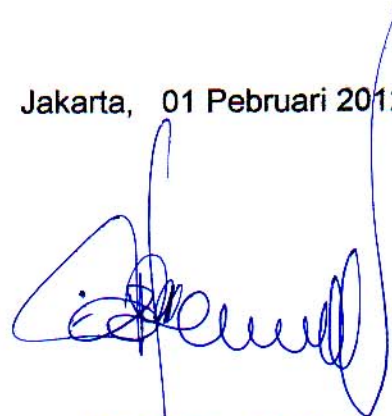 Jakarta, 01 Pebruari 201